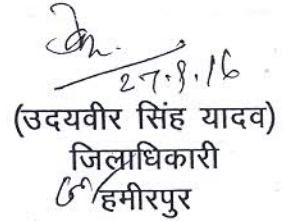 27.9.16
(उदयवीर सिंह यादव)
जिलाधिकारी
हमीरपुर